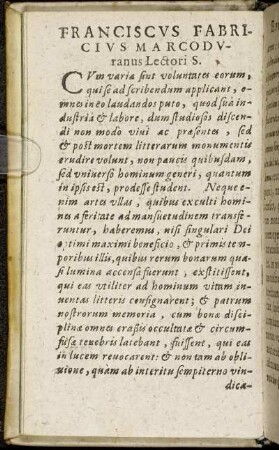 FRANCISCVS FABRI-
CIVS MARCODV-
ranus Lectori S.
CVm variæ sint voluntates eorum,
qui se ad scribendum applicant, o-
mnes in eo laudandos puto, quod suâ in-
dustriâ & labore, dum studiosis discen-
di non modò viui ac præsentes, sed
& post mortem litterarum monumentis
erudire volunt, non paucis quibusdam,
sed vniuerso hominum generi, quantum
in ipsis est, prodesse student. Neque e-
nim artes vllas, quibus exculti homi-
nes a feritate ad mansuetudinem transfe-
runtur, haberemus, nisi singulari Dei
optimi maximi beneficio, & primis te-
poribus illis, quibus rerum bonarum qua-
si lumina accensa fuerunt, exstitissent,
qui eas vtiliter ad hominum vitam in-
uentas litteris consignarent; & patrum
nostrorum memoria, cum bonæ disci-
plinæ omnes crassis occultatæ & circum-
fusæ tenebris latebant, fuissent, qui eas
in lucem reuocarent: & non tam ab obli-
uione, quàm ab interitu sempiterno vin-
dica-